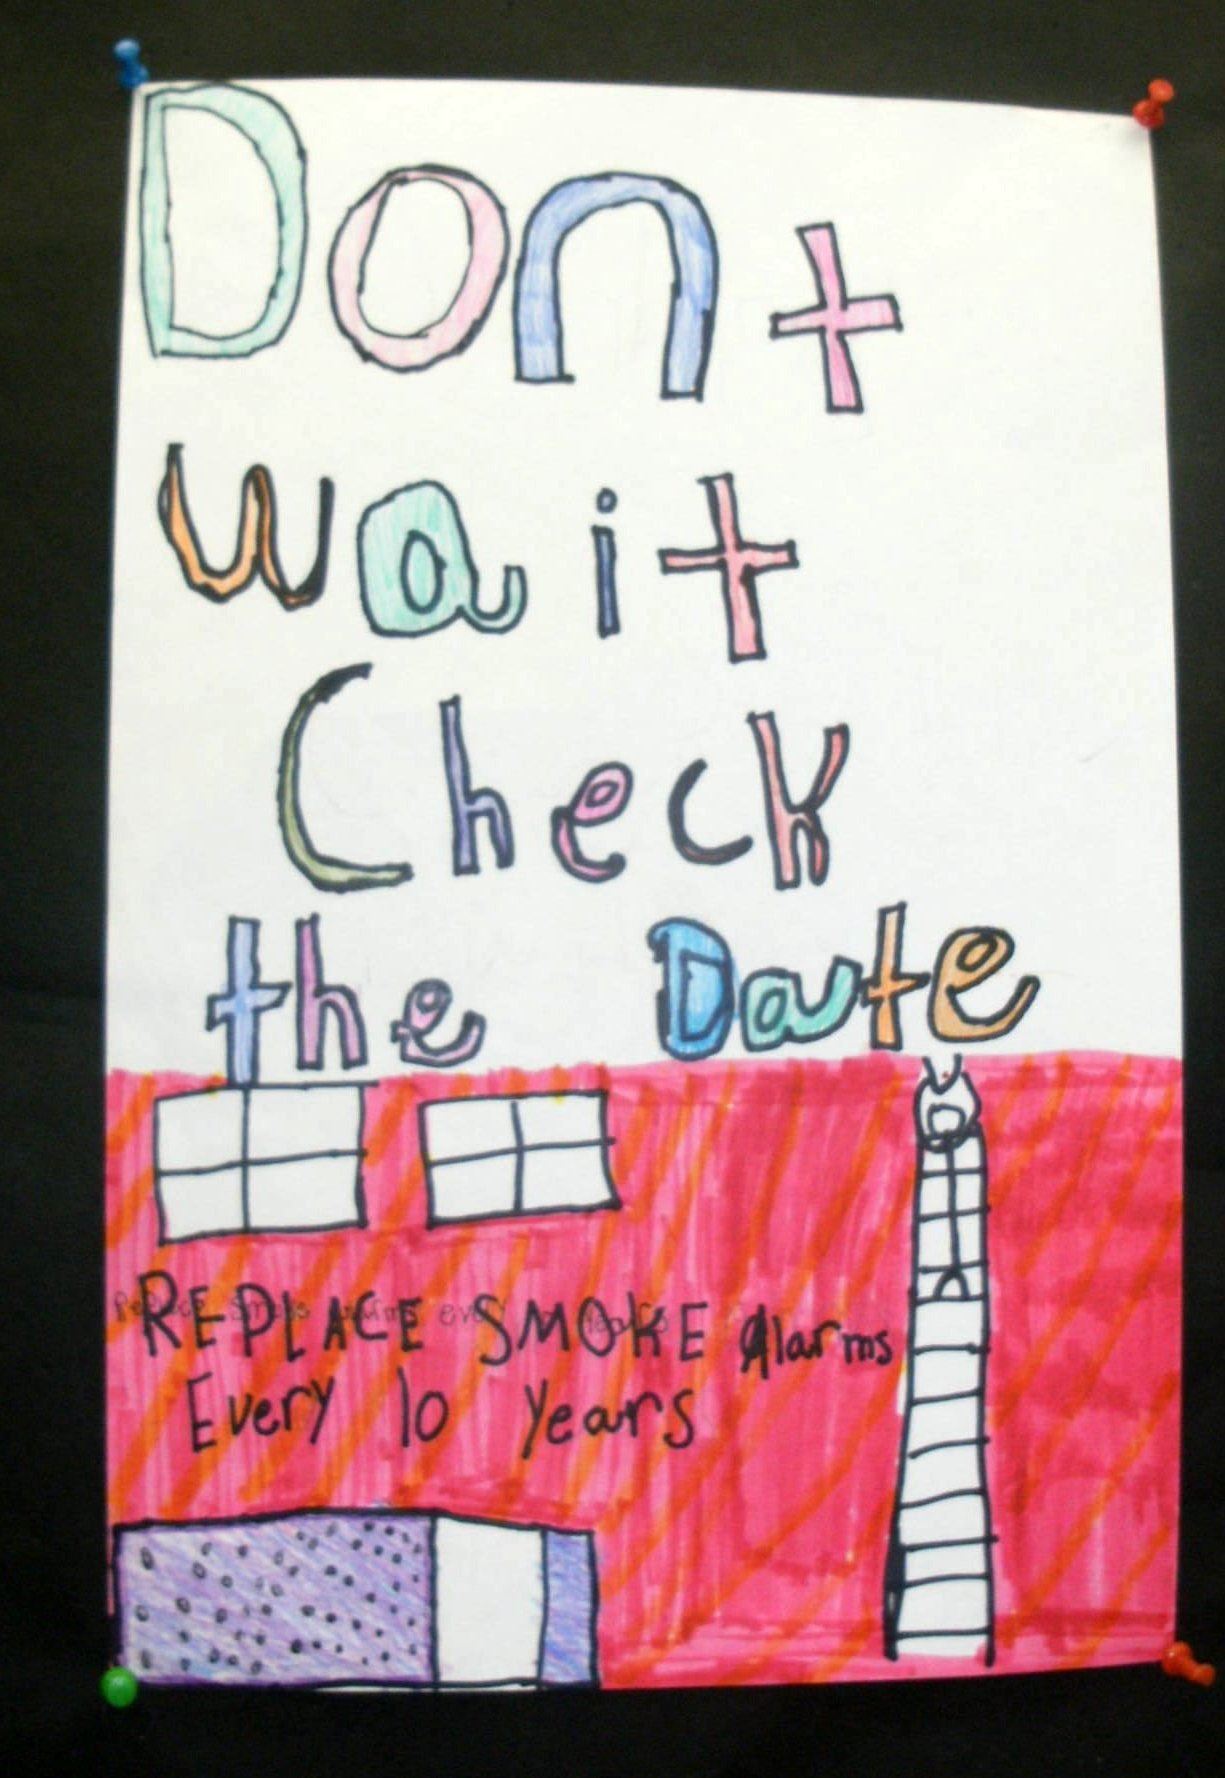 Don t
wait
Check
the Date
REPLACE SMOKE Alarms
Every 10 years